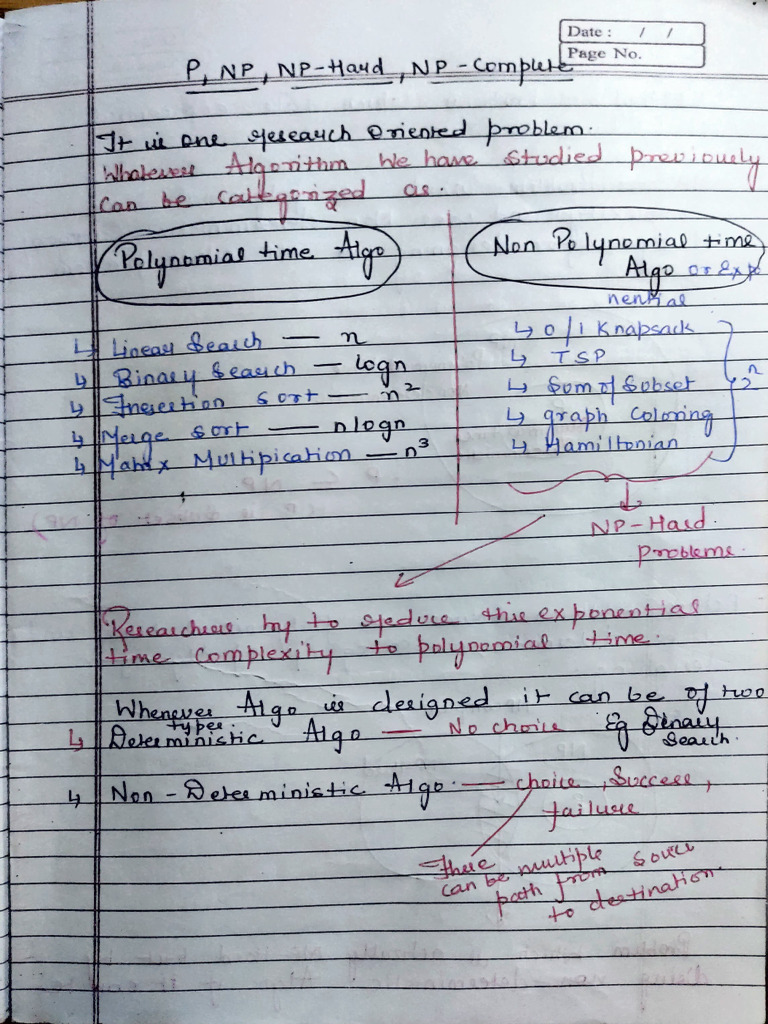 Date : / /
Page No.
P, NP, NP-Hard, NP-Complete
It is one research Oriented problem.
Whatever Algorithm We have Studied previously
can be categorized as.
Polynomial time Algo
Non Polynomial time
Algo or Expo
nential
↳ Linear Search — n
↳ Binary Search — logn
↳ Insertion sort — n²
↳ Merge Sort — nlogn
↳ Matrix Multipication — n³
↳ 0/1 Knapsack
↳ TSP
↳ Sum of Subset
↳ graph Coloring
↳ Hamiltonian
2ⁿ
NP-Hard.
Problems.
Researchers try to reduce this exponential
time complexity to polynomial time.
Whenever Algo is designed it can be of two
types.
↳ Deterministic Algo — No choice Eg Binary
Search.
↳ Non-Deterministic Algo. — choice, Success,
failure
There
can be multiple
path from Source
to destination.